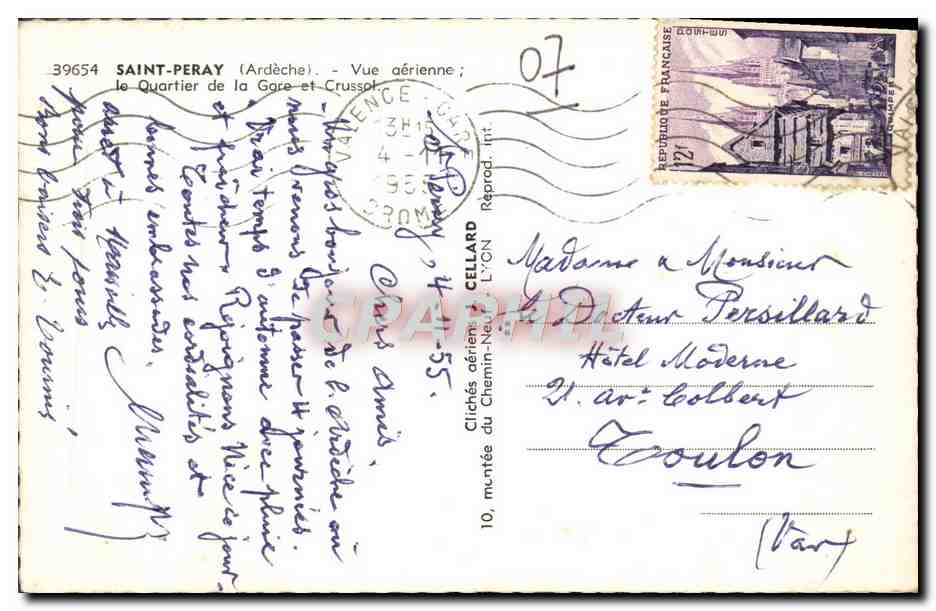 39654 SAINT-PERAY (Ardèche). - Vue aérienne ;
le Quartier de la Gare et Crussol.
07
VALENCE - GARE
13H15
4 - 11
1955
DROME
REPUBLIQUE FRANÇAISE
POSTES
12f
QUIMPER
St Peray, 4-11-55.
Chers amis,
Un gros bonjour de l'Ardèche où
nous venons de passer 4 journées.
Vrai temps d'automne avec pluie
et fraîcheur. Rejoignons Nice ce jour.
Toutes nos cordialités et
bonnes embrassades.
arrêt à Marseille
pour tous
Bons baisers
Clichés aériens CELLARD
10, montée du Chemin-Neuf - LYON Reprod. int.
CPAPHIL
Madame & Monsieur
le Docteur Persillard
Hôtel Moderne
21. av. Colbert
Toulon
(Var)